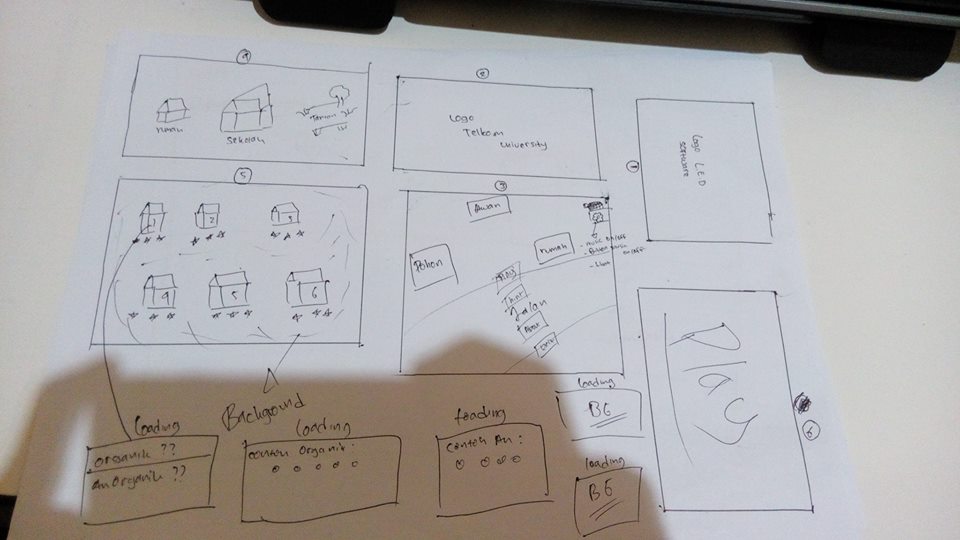 4
rumah
sekolah
Taman
2
Logo
Telkom
University
1
Logo L.E.D
software
5
1
2
3
4
5
6
3
Awan
Pohon
rumah
- Music on/off
- on/off
Play
Jalan
About
6
Play
Background
loading
organik ??
anorganik ??
loading
contoh organik:
loading
contoh An:
loading
BG
loading
BG